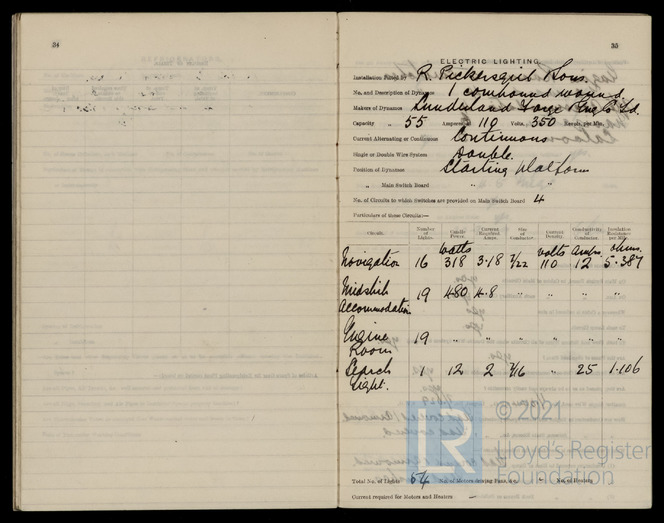 34
35
ELECTRIC LIGHTING
Installation fitted by R. Pickersgill & Sons.
No. and Description of Dynamos 1 compound wound
Makers of Dynamos Sunderland Forge & Eng Co Ld.
Capacity „ 55 Amperes, at 110 Volts, 350 Revols. per Min.
Current Alternating or Continuous Continuous
Single or Double Wire System Double.
Position of Dynamos Starting platform
„ Main Switch Board „ „
No. of Circuits to which Switches are provided on Main Switch Board 4
Particulars of these Circuits:—
Circuit. Number of Lights. Candle Power. Current Required Amps. Size of Conductor. Current Density. Conductivity of Conductor. Insulation Resistance per Mile.
watts volts Ambs. ohms.
Navigation 16 318 3.18 7/22 110 12 5.387
Midship Accommodation 19 480 4.8 „ „ „ „
Engine Room 19 „ „ „
Search Light. 1 12 2 7/16 25 1.106
© 2021
LR
Lloyd's Register
Foundation
Total No. of Lights 54 No. of Motors driving Fans, &c. „ No. of Heaters
Current required for Motors and Heaters —